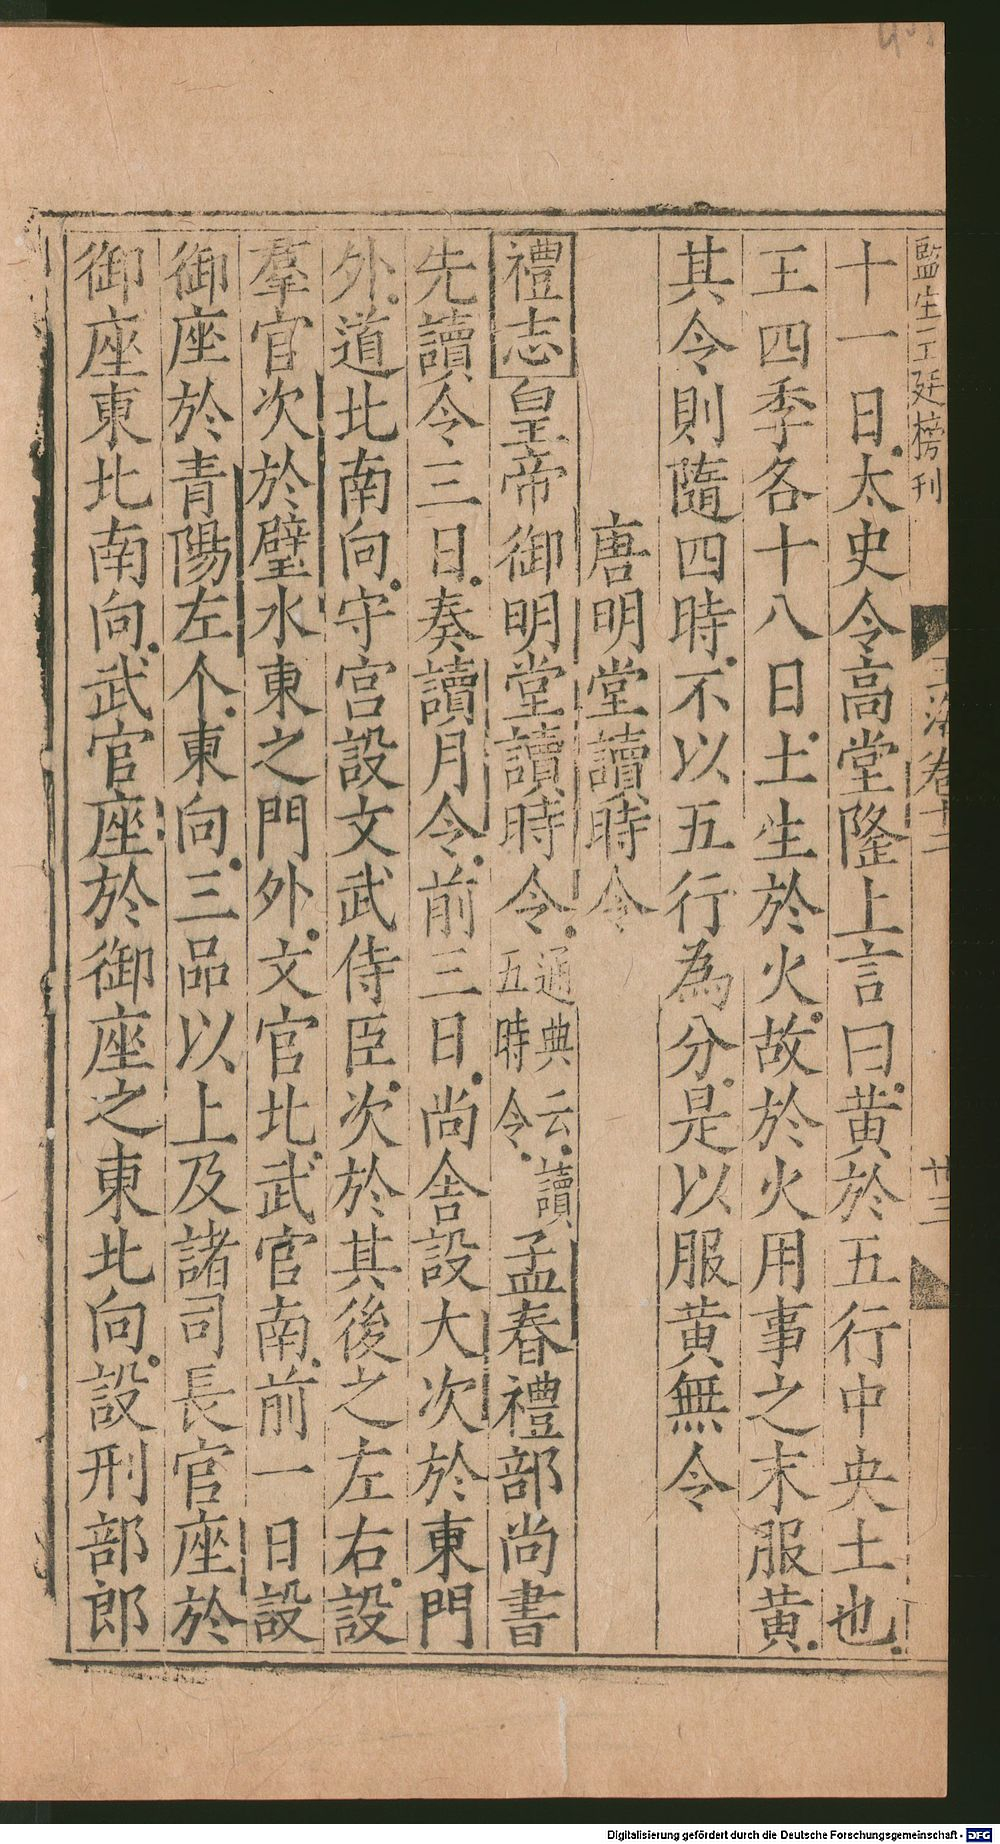 監生王廷榜刊
玉海卷十二
廿三
十一日太史令高堂隆上言曰黄於五行中央土也
王四季各十八日土生於火故於火用事之末服黄
其令則隨四時不以五行為分是以服黄無令
唐明堂讀時令
禮志皇帝御明堂讀時令通典云讀五時令孟春禮部尚書
先讀令三日奏讀月令前三日尚舍設大次於東門
外道北南向守宫設文武侍臣次於其後之左右設
羣官次於璧水東之門外文官北武官南前一日設
御座於青陽左个東向三品以上及諸司長官座於
御座東北南向武官座於御座之東北向設刑部郎
Digitalisierung gefördert durch die Deutsche Forschungsgemeinschaft - DFG